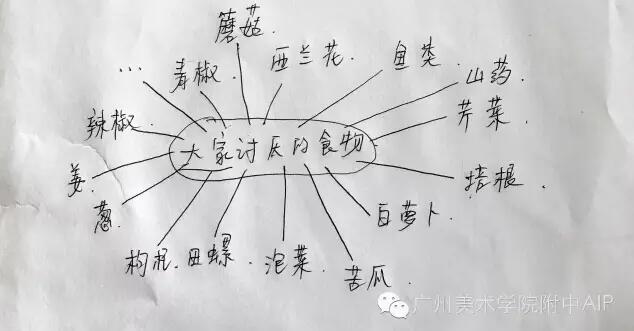 蘑菇.
… 青椒. 西兰花. 鱼类. 山药
辣椒. 芹菜.
大家讨厌的食物
姜. 桔根.
葱 白萝卜.
枸杞. 田螺. 泡菜. 苦瓜.
广州美术学院附中AIP